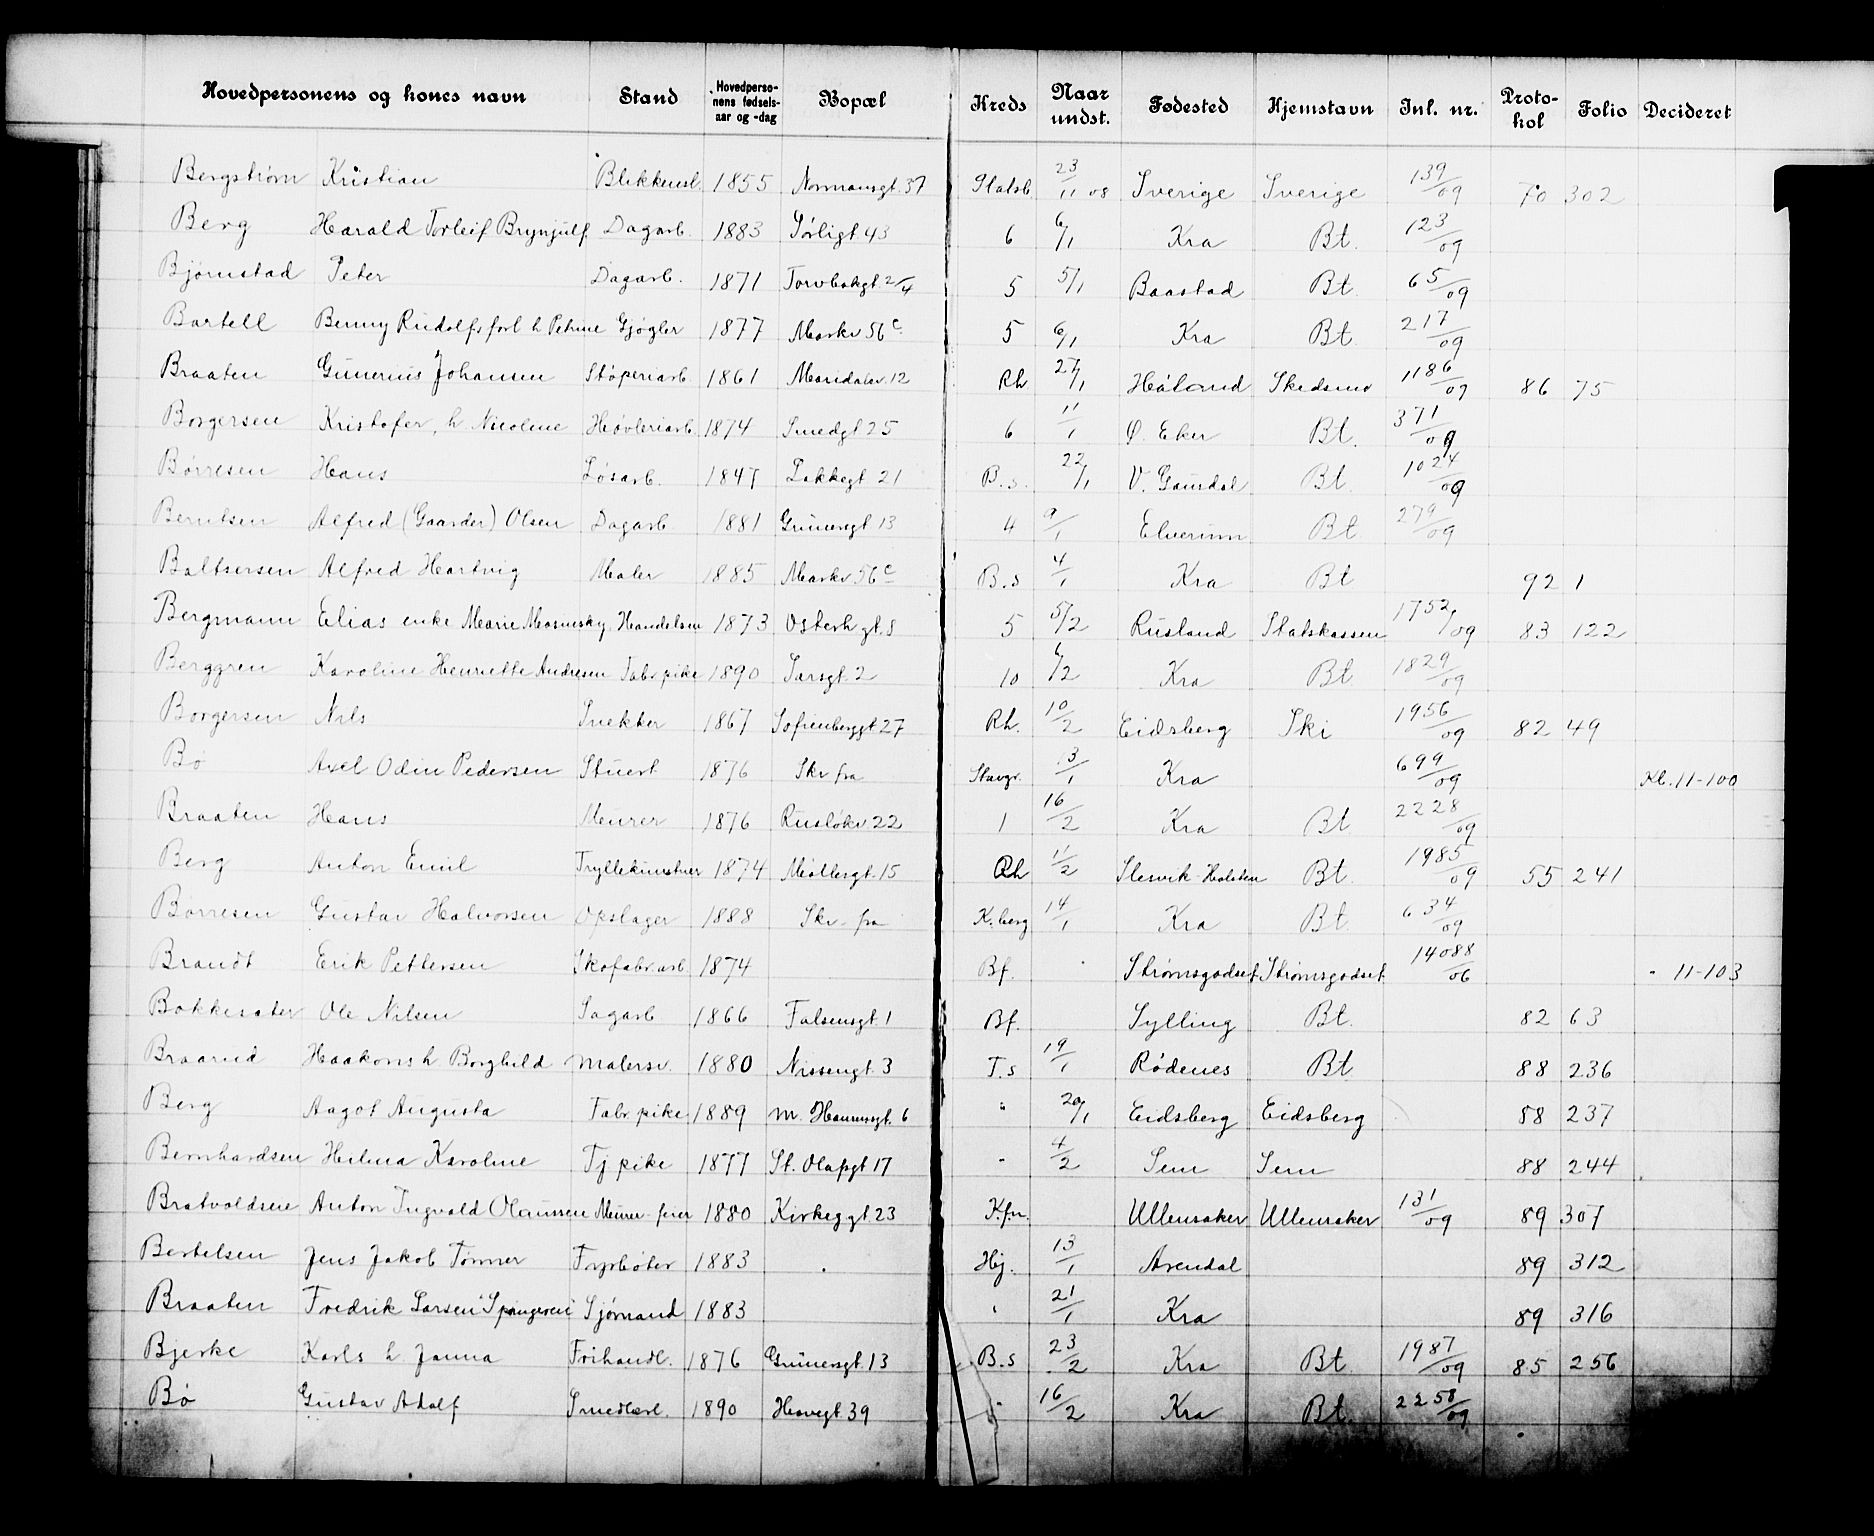 Hovedpersonens og kones navn Stand Hovedpersonens fødselsaar og -dag Bopæl Kreds Naar undst. Fødested Hjemstavn Inl. nr. Protokol Folio Decideret
Bergstrøm Kristian Blikkensl. 1855 Normannsgt. 37 Statsb. 23/11 08 Sverige Sverige 139/09 70 302
Berg Harald Torleif Brynjulf Dagarb. 1883 Sørligt 43 6 6/1 Kra Bt. 123/09
Bjørnstad Peter Dagarb. 1871 Torvbakgt 2/4 5 5/1 Baastad Bt. 65/09
Bartell Benny Rudolf, forl. h Petrine Gjøgler 1877 Markv 56 c 5 6/1 Kra Bt. 217/09
Braaten Gunerius Johansen Støperiarb. 1861 Maridalsv. 12 Rh 27/1 Høland Skedsmo 1186/09 86 75
Borgersen Kristofer, h. Nicoline Høvleriarb. 1874 Smedgt 25 6 11/1 Ø. Eker Bt. 371/09
Børresen Hans Løsarb. 1847 Lakkegt 21 B.s. 22/1 V. Gausdal Bt. 1024/09
Berntsen Alfred (Gaarder) Olsen Dagarb. 1881 Grünersgt 13 4 9/1 Elverum Bt. 279/09
Baltsersen Alfred Hartvig Maler 1885 Markv 56 c B.s 4/1 Kra Bt 92 1
Bergmann Elias enke Marie Handelsm 1873 Osterh gt. 8 5 5/2 Rusland Statskassen 1752/09 83 122
Berggren Karoline Henriette Andresen Fabr pike 1890 Sarsgt. 2 10 6/2 Kra Bt. 1829/09
Borgersen Nils Snekker 1867 Sofienberggt 27 Rh. 10/2 Eidsberg Ski 1956/09 82 49
Bø Axel Odin Pedersen Stuert 1876 Skr fra Stavgr. 13/1 Kra 699/09 Kl. 11-100
Braaten Hans Murer 1876 Rusløkv 22 1 16/2 Kra Bt 2228/09
Berg Anton Emil Tryllekunstner 1874 Møllergt. 15 Rh 11/2 Slesvik-Holsten Bt. 1985/09 55 241
Børresen Gustav Halvorsen Opslager 1888 Skr. fra K.berg 14/1 Kra Bt. 634/09
Brandt Erik Pettersen Skofabr.arb 1874 Bf. Strømsgodset Strømsgodset 14088/06 " 11-103
Bakkesæter Ole Nilsen Sagarb 1866 Falsensgt. 1 Bf. Sylling Bt. 82 63
Braarud Haakons h Borghild malersv. 1880 Nissengt. 3 T.s 19/1 Rødenes Bt 88 236
Berg Aagot Augusta Fabr pike 1889 m. Hammersgt. 6 " 20/1 Eidsberg Eidsberg 88 237
Bernhardsen Helma Karoline Tj pike 1877 St. Olafsgt 17 " 4/2 Sem Sem 88 244
Bratvoldsen Anton Ingvald Olaussen 1880 Kirkeggt. 23 K.fn. Ullensaker Ullensaker 131/09 89 307
Bertelsen Jens Jakob Tønner Fyrbøter 1883 Hj. 13/1 Arendal 89 312
Braaten Fredrik Larsen "Springeren" Sjømand 1883 " 21/1 Kra 89 316
Bjerke Karls h. Janna Frihandl. 1876 Grünersgt. 13 B.s 23/2 Kra Bt 1987/09 85 256
Bø Gustav Adolf Smedlærl. 1890 Havegt. 39 " 16/2 Kra Bt. 2258/09